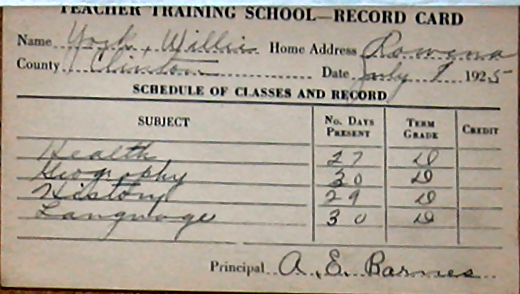 TEACHER TRAINING SCHOOL—RECORD CARD
Name York, Willis Home Address Rowena
County Clinton Date July 8 1925
SCHEDULE OF CLASSES AND RECORD
SUBJECT No. DAYS PRESENT TERM GRADE CREDIT
Health 27 D
Geography 30 D
History 29 D
Language 30 D
Principal A. E. Barnes